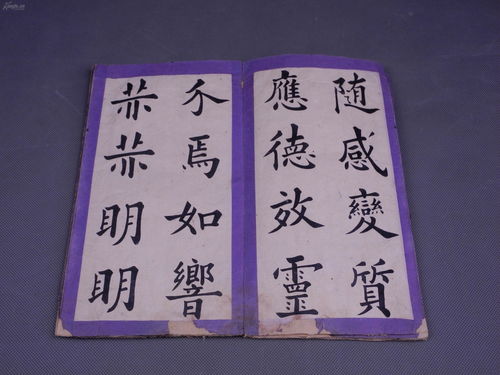 随感變質
應德效靈
介焉如響
明明